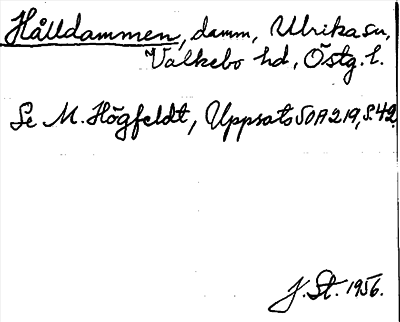 Hålldammen, damm, Ulrika sn,
Valkebo hd, Östg. l.
Se M. Högfeldt, Uppsats SOA 219, s. 42.
J. St. 1956.